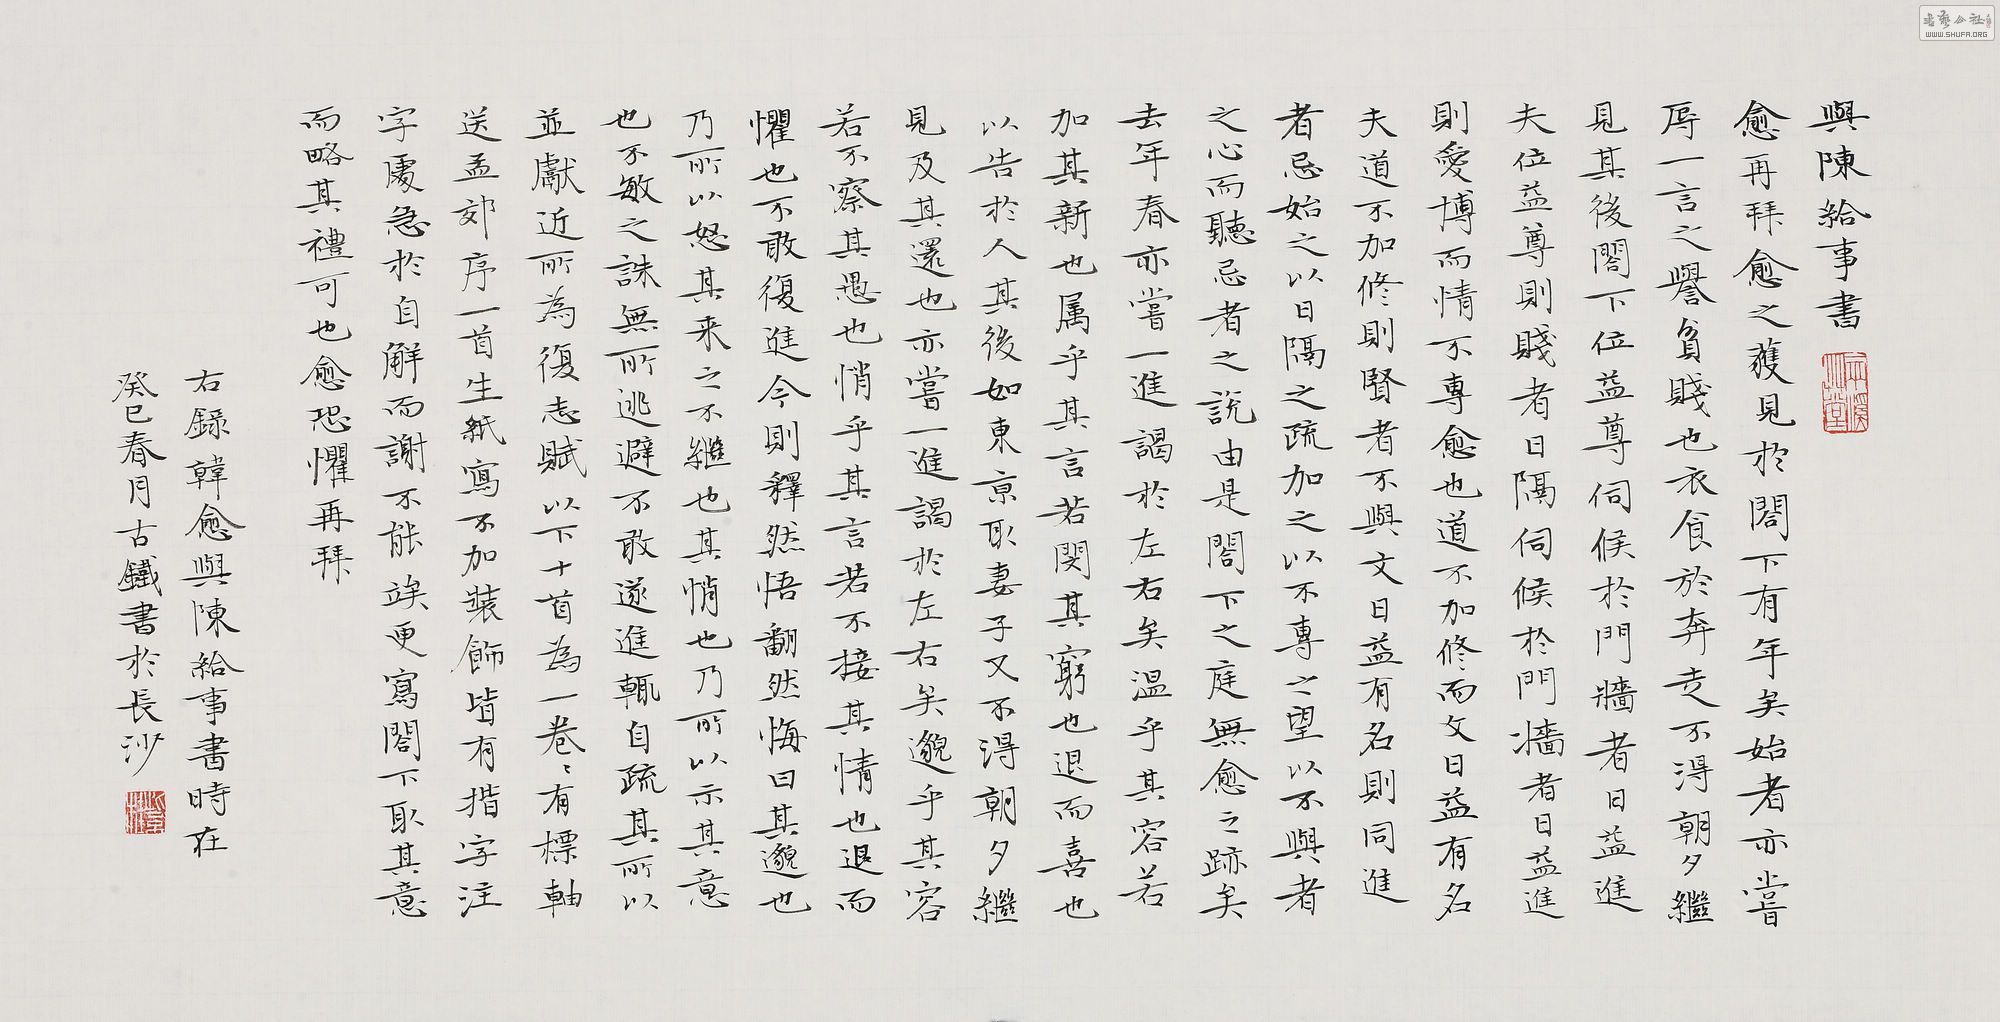 與陳給事書
愈再拜愈之獲見於閣下有年矣始者亦嘗
辱一言之譽貧賤也衣食於奔走不得朝夕繼
見其後閣下位益尊伺候於門牆者日益進
夫位益尊則賤者日隔伺候於門牆者日益進
則愛博而情不專愈也道不加修而文日益有名
夫道不加修則賢者不與文日益有名則同進
者忌始之以日隔之疏加之以不專之望以不與者
之心而聽忌者之說由是閣下之庭無愈之跡矣
去年春亦嘗一進謁於左右矣溫乎其容若
加其新也属乎其言若閔其窮也退而喜也
以告於人其後如東京取妻子又不得朝夕繼
見及其還也亦嘗一進謁於左右矣邈乎其容
若不察其愚也悄乎其言若不接其情也退而
懼也不敢復進今則釋然悟翻然悔曰其邈也
乃所以怒其来之不繼也其悄也乃所以示其意
也不敏之誅無所逃避不敢遂進輒自疏其所以
並獻近所為復志賦以下十首為一卷〻有標軸
送孟郊序一首生紙寫不加裝飾皆有揩字注
字處急於自解而謝不能竢更寫閣下取其意
而略其禮可也愈恐懼再拜
右錄韓愈與陳給事書時在
癸巳春月古鐵書於長沙
書藝公社
WWW.SHUFA.ORG